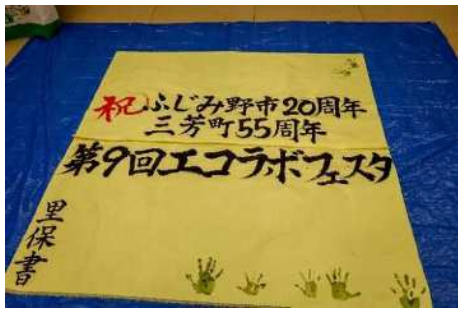 祝ふじみ野市20周年
三芳町55周年
第9回エコラボフェスタ
里保書